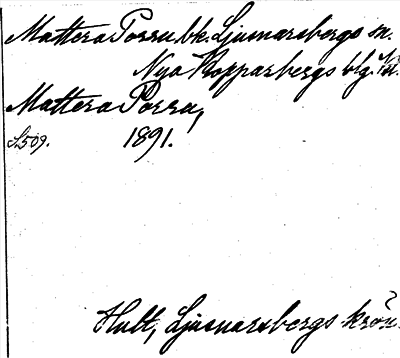 Mattera Porru, bk. Ljusnarsbergs sn.
Nya Kopparbergs blg.
Mattera Porru,
S.509. 1891.
Hult, Ljusnarsbergs krön.